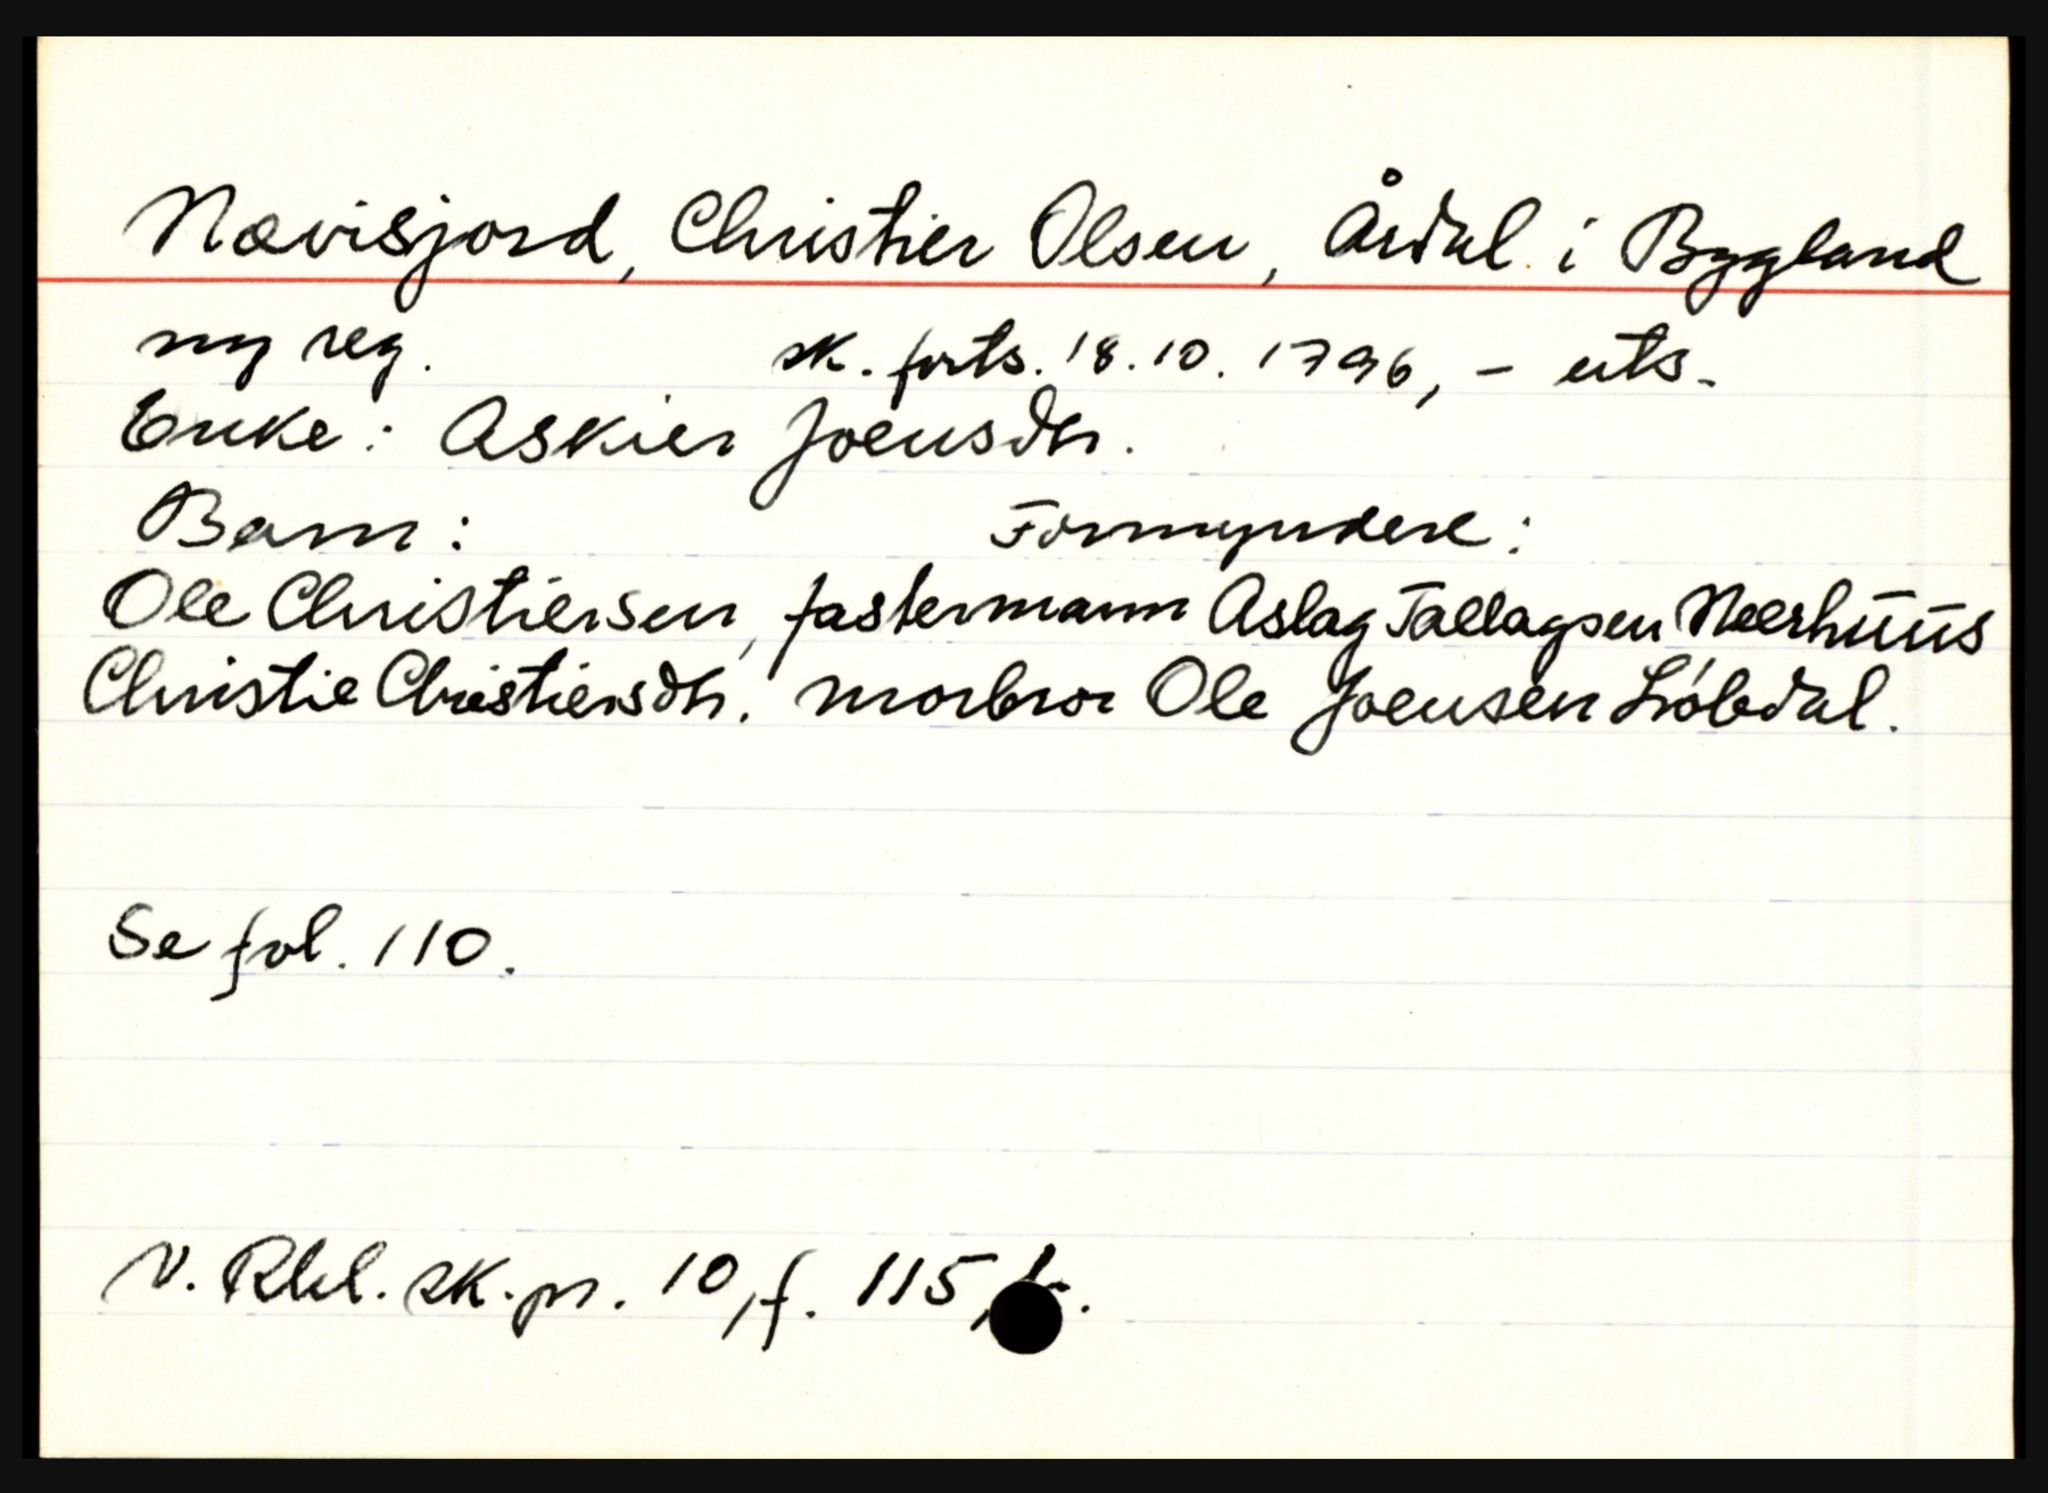 Nævisjord, Christier Olsen, Årdal i Bygland
ny reg. sk. forts. 18.10. 1796, - uts.
Enke: Askier Joensdtr.
Barn: Formyndere:
Ole Christiersen, fastermann Aslag Tallagsen Neershuus
Christie Christiersdtr. morbror Ole Joensen Lióbdal.
Se fol. 110.
V. Rbl. sk. pr. 10, f. 115,